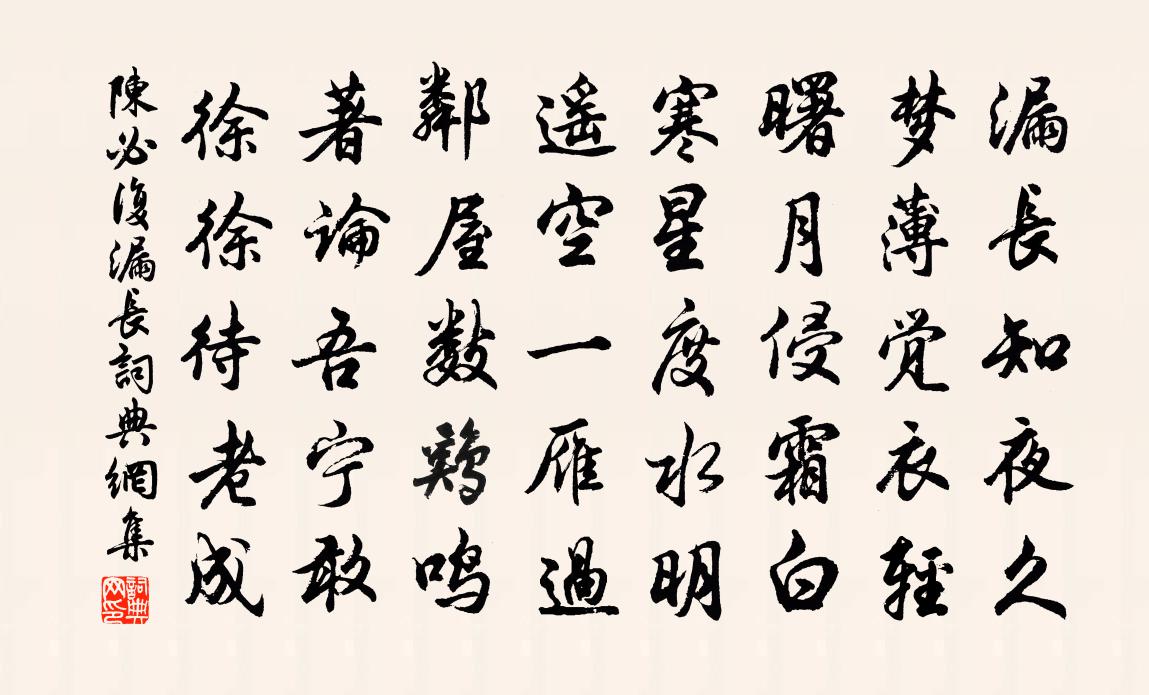 漏長知夜久
梦薄觉衣輕
曙月侵霜白
寒星度水明
遥空一雁過
鄰屋数鷄鸣
著論吾宁敢
徐徐待老成
陳必復漏長詞典網集
詞典网印